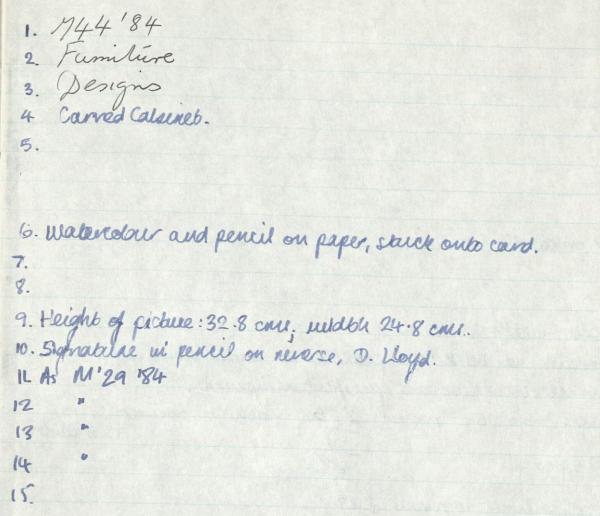 1. M44 '84
2. Furniture
3. Designs
4 Carved Cabinet.
5.
6. Watercolour and pencil on paper, stuck onto card.
7.
8.
9. Height of picture: 32.8 cms, width 24.8 cms.
10. Signature in pencil on reverse, D. Lloyd.
11. As M'29 '84
12 "
13 "
14 "
15.